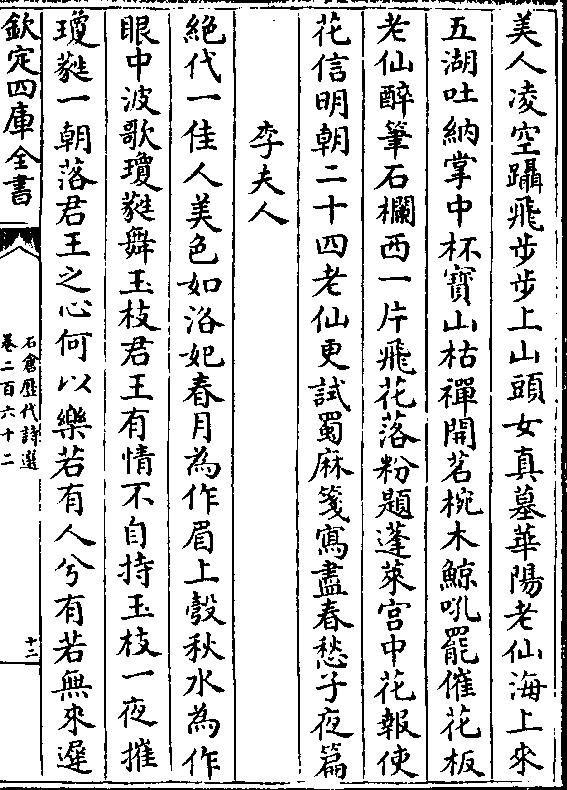 美人凌空躡飛步步上山頭女真墓華陽老仙海上來
五湖吐納掌中杯寶山枯禪開茗椀木鯨吼罷催花板
老仙醉筆石欄西一片飛花落粉題蓬萊宮中花報使
花信明朝二十四老仙更試蜀麻箋寫盡春愁子夜篇
李夫人
絕代一佳人美色如洛妃春月為作眉上彀秋水為作
眼中波歌瓊蕤舞玉枝君王有情不自持玉枝一夜摧
瓊蕤一朝落君王之心何以樂若有人兮有若無來遲
欽定四庫全書
石倉歷代詩選
卷二百六十二
十二